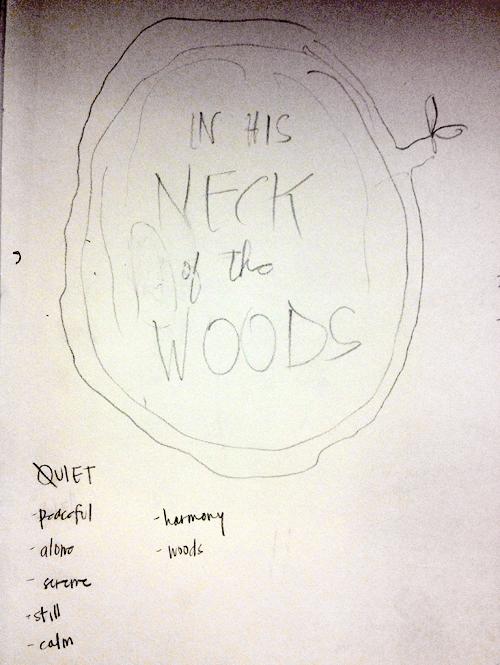 IN HIS
NECK
of the
WOODS
QUIET
- peaceful
- alone
- serene
- still
- calm
- harmony
- woods